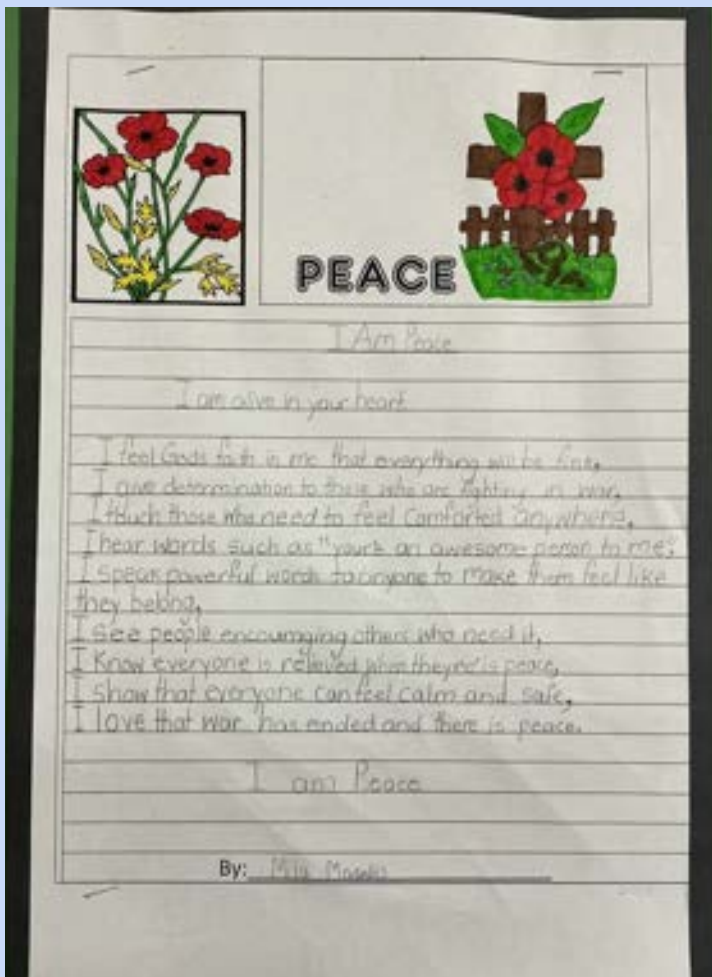 PEACE
I Am Peace
I am alive in your heart
I feel Gods faith in me that everything will be fine,
I give determination to those who are fighting in war,
I touch those who need to feel comforted anywhere,
I hear words such as "your's an awesome person to me".
I speak powerful words to anyone to make them feel like
they belong,
I see people encouraging others who need it,
I know everyone is relieved when is peace,
I show that everyone can feel calm and safe,
I love that war has ended and there is peace.
I am Peace
By: Mila